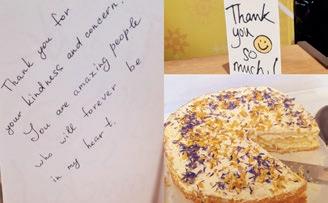 Thank you for
your kindness and concern!
You are amazing people
who will forever be
in my heart.
Thank
you
so
much!